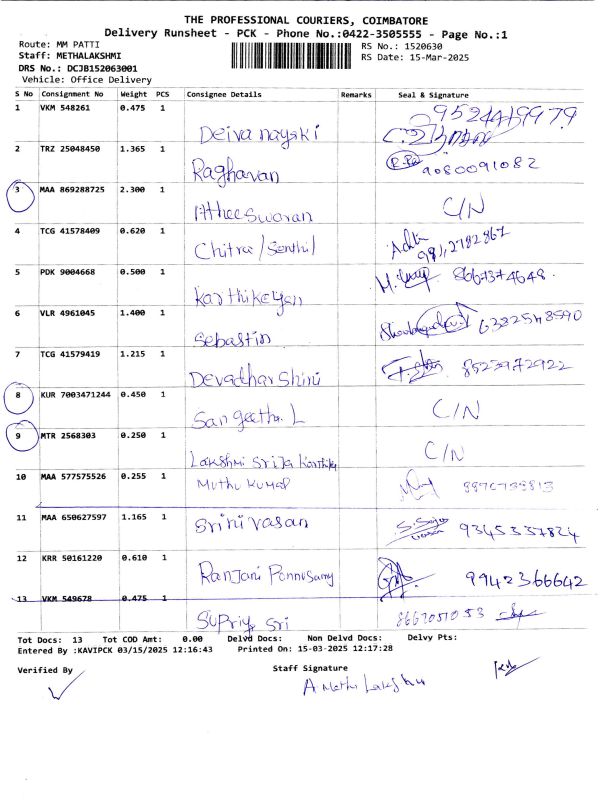 THE PROFESSIONAL COURIERS, COIMBATORE
Delivery Runsheet - PCK - Phone No.:0422-3505555 - Page No.:1
Route: MM PATTI
RS No.: 1520630
Staff: METHALAKSHMI
RS Date: 15-Mar-2025
DRS No.: DCJB152063001
Vehicle: Office Delivery
S No Consignment No Weight PCS Consignee Details Remarks Seal & Signature
1 VKM 548261 0.475 1 9524419979
Deivanayaki
2 TRZ 25048450 1.365 1 9080091082
Raghavan
3 MAA 869288725 2.300 1 C/N
Atheeswaran
4 TCG 41578409 0.620 1
Chitra/Senthil
5 PDK 9004668 0.500 1 8667374648
Karthikeyan
6 VLR 4961045 1.400 1 6382548590
Sebastin
7 TCG 41579419 1.215 1 8523972922
Devadharshini
8 KUR 7003471244 0.450 1 C/N
Sangeetha. L
9 MTR 2568303 0.250 1 C/N
Lakshmi Srija Karthika
10 MAA 577575526 0.255 1
Muthu Kumar
11 MAA 650627597 1.165 1 9345337824
Srinivasan
12 KRR 50161220 0.610 1 9942366642
Ranjani Ponnusamy
13 VKM 549678 0.475 1
Supriya Sri 8667051053
Tot Docs: 13 Tot COD Amt: 0.00 Delvd Docs: Non Delvd Docs: Delvy Pts:
Entered By :KAVIPCK 03/15/2025 12:16:43 Printed On: 15-03-2025 12:17:28
Verified By
Staff Signature
A Methi Lakshu